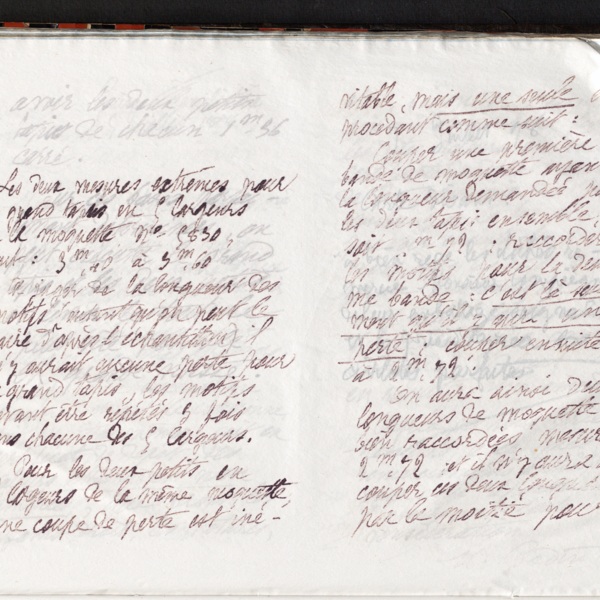 avoir les deux petits
tapis de chacun 1m 36
carré.
Les deux mesures extrêmes pour
grand tapis en 5 largeurs
la moquette no 5830,
3m à 3m60
de la longueur des
motifs autant qu'on peut le
d'après l'échantillon) il
n'y aurait aucune perte pour
grand tapis, les motifs
être répétés 5 fois
chacune des 5 largeurs.
Pour les deux petits en
largeurs de la même moquette,
une coupe de perte est iné-
vitable, mais une seule
procédant comme suit :
Couper une première
bande de moquette ayant
la longueur demandée
les deux tapis ensemble,
soit 2m72 : raccorder
les motifs pour la
me bande : c'est là
ment qu'il y aura une
perte : couper ensuite
à 2m72.
On aura ainsi deux
longueurs de moquette
raccordées
2m72 : et il n'y aura
couper ces deux longueurs
par la moitié pour